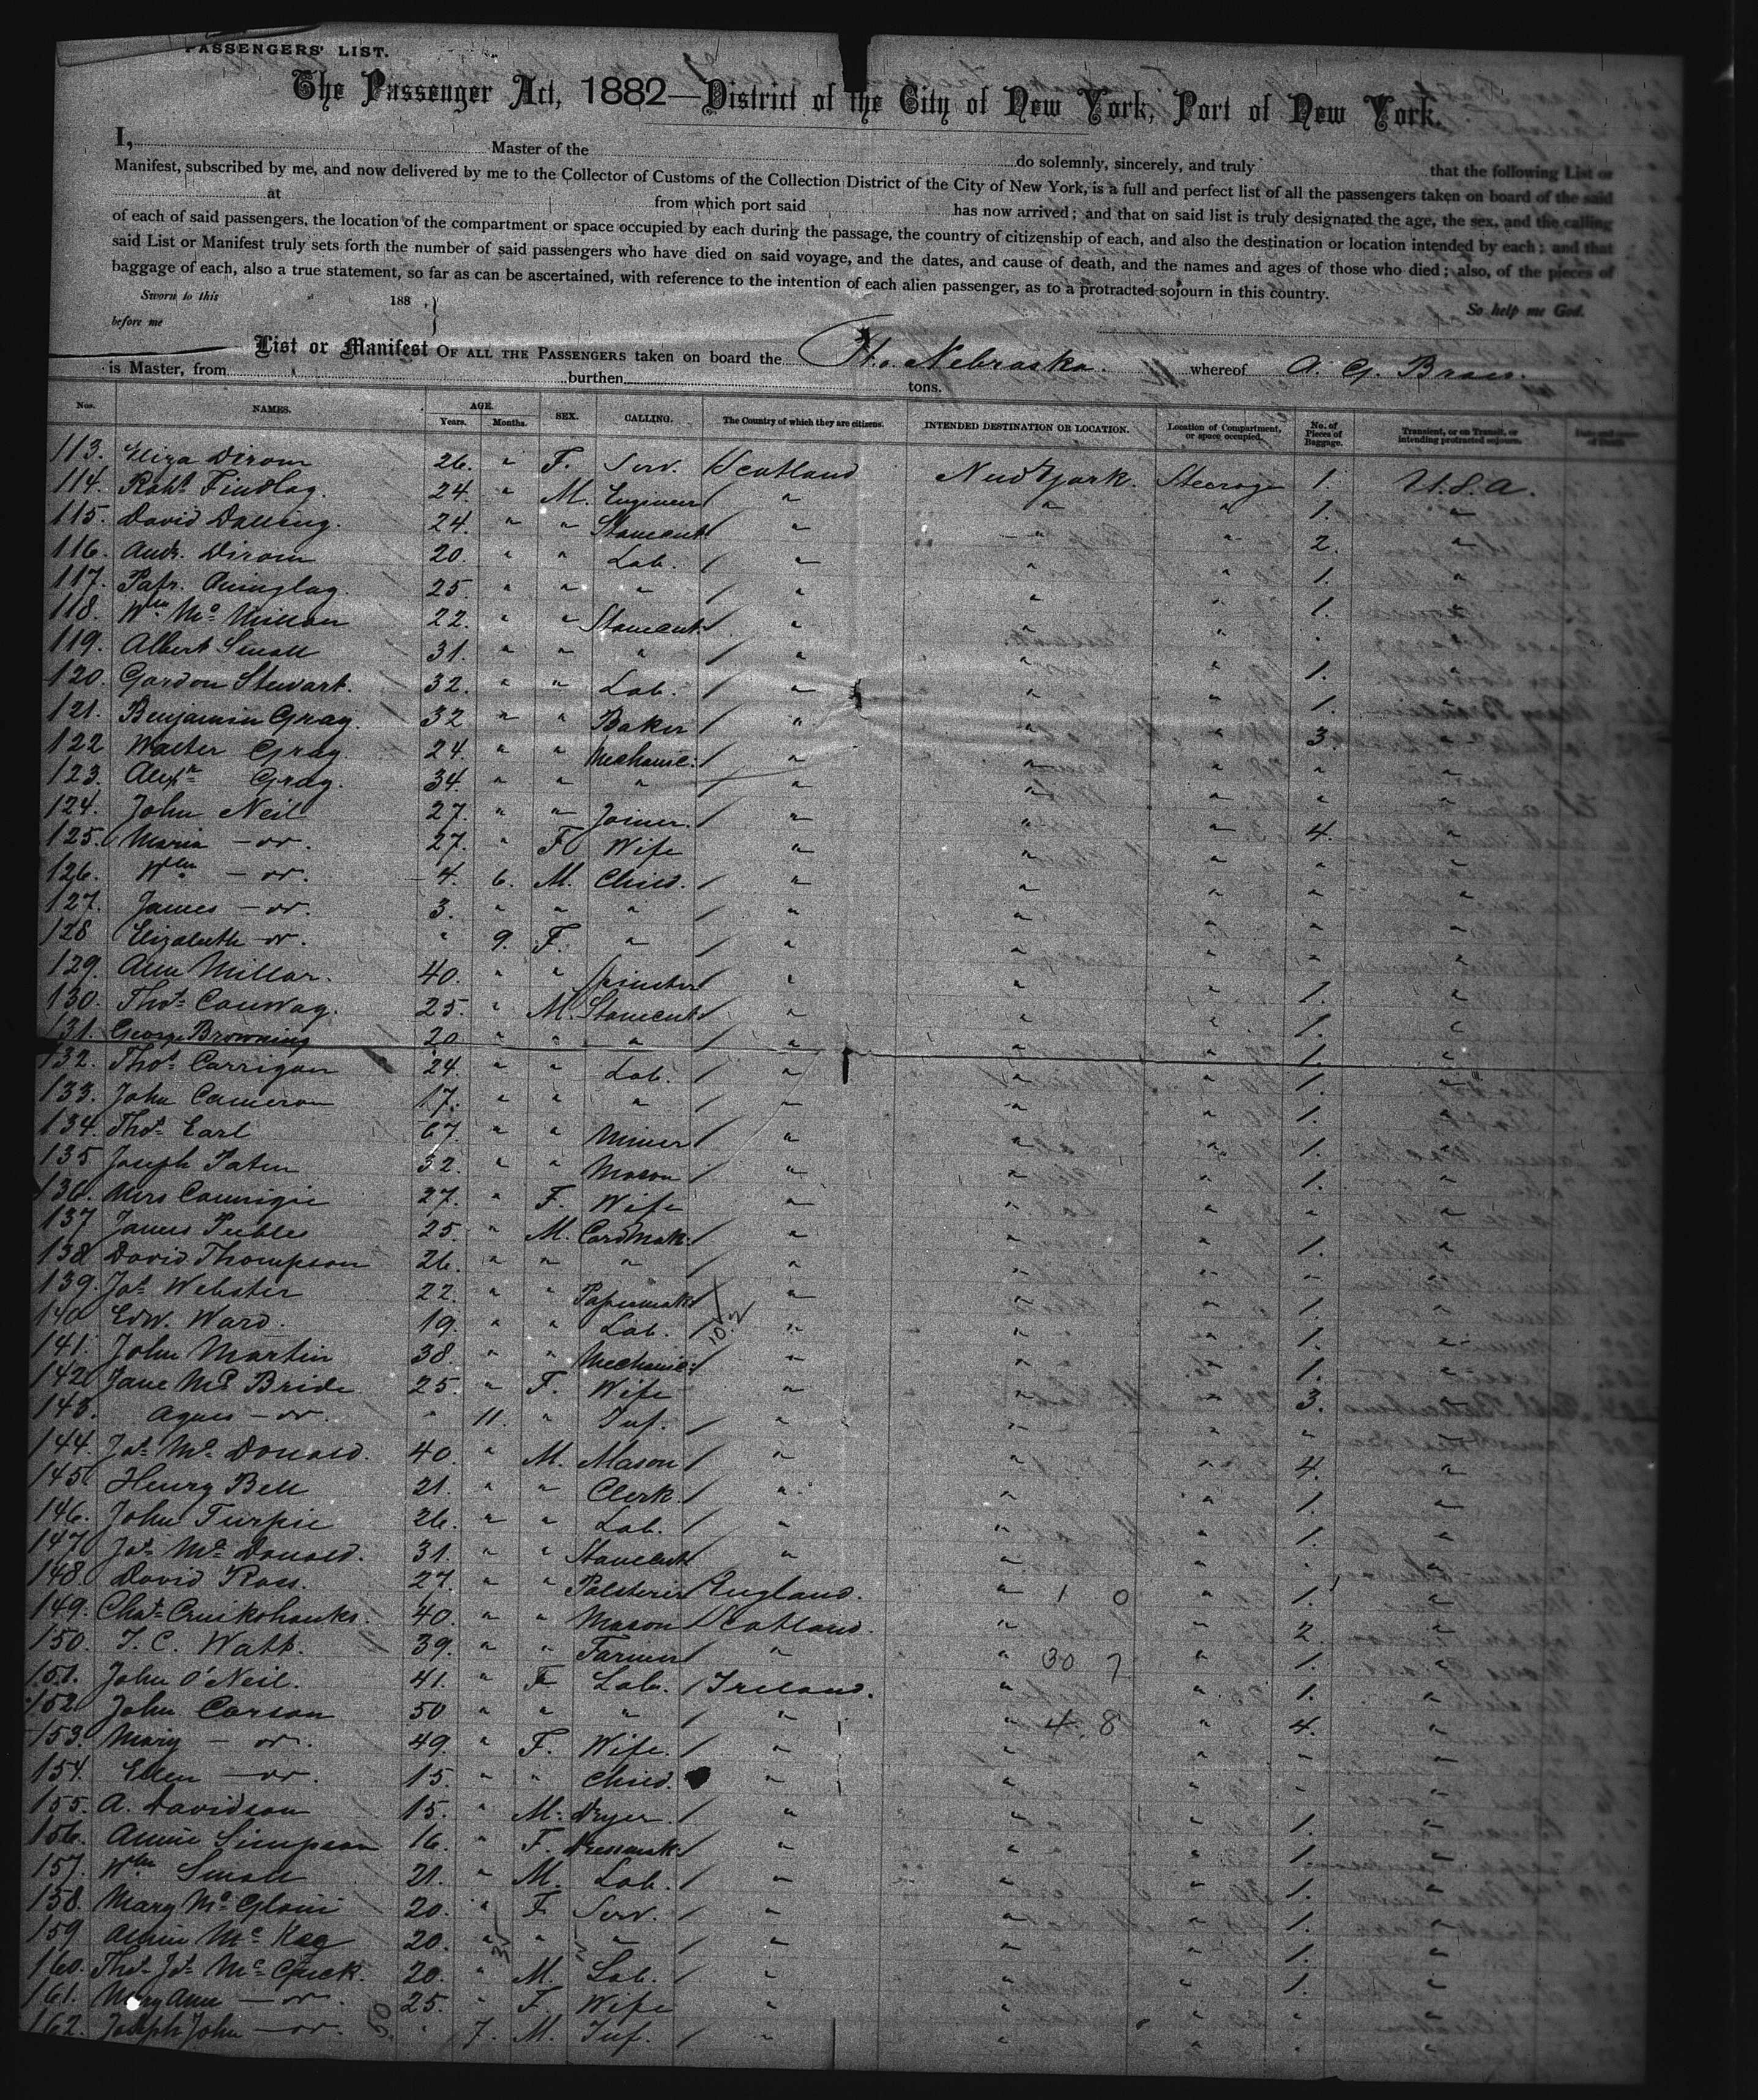 PASSENGERS' LIST.
The Passenger Act, 1882—District of the City of New York, Port of New York.
I, Master of the do solemnly, sincerely, and truly that the following List or
Manifest, subscribed by me, and now delivered by me to the Collector of Customs of the Collection District of the City of New York, is a full and perfect list of all the passengers taken on board of the said
at from which port said has now arrived; and that on said list is truly designated the age, the sex, and the calling
of each of said passengers, the location of the compartment or space occupied by each during the passage, the country of citizenship of each, and also the destination or location intended by each; and that
said List or Manifest truly sets forth the number of said passengers who have died on said voyage, and the dates, and cause of death, and the names and ages of those who died; also, of the pieces of
baggage of each, also a true statement, so far as can be ascertained, with reference to the intention of each alien passenger, as to a protracted sojourn in this country.
Sworn to this 188 So help me God.
before me
List or Manifest OF ALL THE PASSENGERS taken on board the Nebraska. whereof A. G. Braes.
is Master, from burthen tons.
Nos. NAMES. AGE. SEX. CALLING. The Country of which they are citizens. INTENDED DESTINATION OR LOCATION. Location of Compartment, or space occupied. No. of Pieces of Baggage. Transient, or in Transit, or intending protracted sojourn.
Years. Months.
113. Eliza Dirom 26. " F. Serv. Scotland New York. Steerage 1. U.S.A.
114. Robt. Findlay. 24. " M. Engineer " " " 1. "
115. David Dalling. 24. " " Stonecut " " " 2. "
116. Andr. Dirom 20. " " Lab. " " " 1. "
117. Patr. Quinglay. 25. " " " " " " 1. "
118. Wm. Mc Millan 22. " " Stonecut " " "
119. Albert Small 31. " " " " " " 1. "
120. Gordon Stewart. 32. " " Lab. " " " 1. "
121. Benjamin Gray. 32 " " Baker " " " 3. "
122 Walter Gray. 24. " " Mechanic. " " " " "
123. Alexr. Gray. 34. " " " " " " " "
124. John Neil 27. " " Joiner. " " " 4. "
125. Maria — do. 27. " F Wife " " " " "
126. Wm — do. 4. 6. M. Child. " " " " "
127. James — do. 3. " " " " " " " "
128 Elizabeth do. " 9. F. " " " " " "
129. Ann Millar. 40. " " Spinster " " " 1. "
130. Thos. Conway. 25. " M. Stonecut " " " 1. "
131. George Browning 20 " " " " " " 1. "
132. Thos. Carrigan 24. " " Lab. " " " 1. "
133. John Cameron 17. " " " " " " 1. "
134. Thos. Earl 67. " " Miner " " " 1. "
135 Joseph Paten 32. " " Mason " " " 1. "
136. Mrs 27. " F. Wife " " " " "
137 James Peebles 25. " M. Cordmak. " " " 1. "
138 David Thompson 26. " " " " " " " "
139. Jas. Webster 22. " " Papermak " " " 1. "
140 Edw. Ward. 19. " " Lab. " " " 1. "
141. John Martin 38. " " Mechanic. " " " 1. "
142 Jane Mc Bride 25. " F. Wife " " " 3. "
143. Agnes — do. " 11. " Inf. " " " " "
144. Jas. Mc Donald. 40. " M. Mason " " " 4. "
145 Henry Bell 21. " " Clerk. " " " 1. "
146. John Turpie 26. " " Lab. " " " 1. "
147 Jas. Mc Donald. 31. " " Stonecut " " " " "
148. David Ross. 27. " " Palsterir England. " 1 0 " 1. "
149. Chas. Cruikshanks. 40. " " Mason Scotland. " " 2. "
150. T. C. Watt. 39. " " Farmer " " 30 7 " 1. "
151. John O'Neil. 41. " F Lab. Ireland. " " 1. "
152 John Carson 50 " " " " " 4. 8 " 4. "
153. Mary — do. 49. " F. Wife. " " " " "
154. Ellen — do. 15. " " Child. " " " " "
155. A. Davidson 15. " M. Dryer. " " " 1. "
156. Annie Simpson 16. " F. Dressmak. " " " 1. "
157. Wm Small 21. " M. Lab. " " " 1. "
158. Mary Mc Gloni 20. " F Serv. " " " 1. "
159 Annie Mc Kay 20. " " " " " " 1. "
160. Thos. Jas. Mc 20. " M. Lab. " " " 1. "
161. Mary Ann — do. 25. " F. Wife " " " " "
162. Joseph John — do. " 7. M. Inf. " " " " "